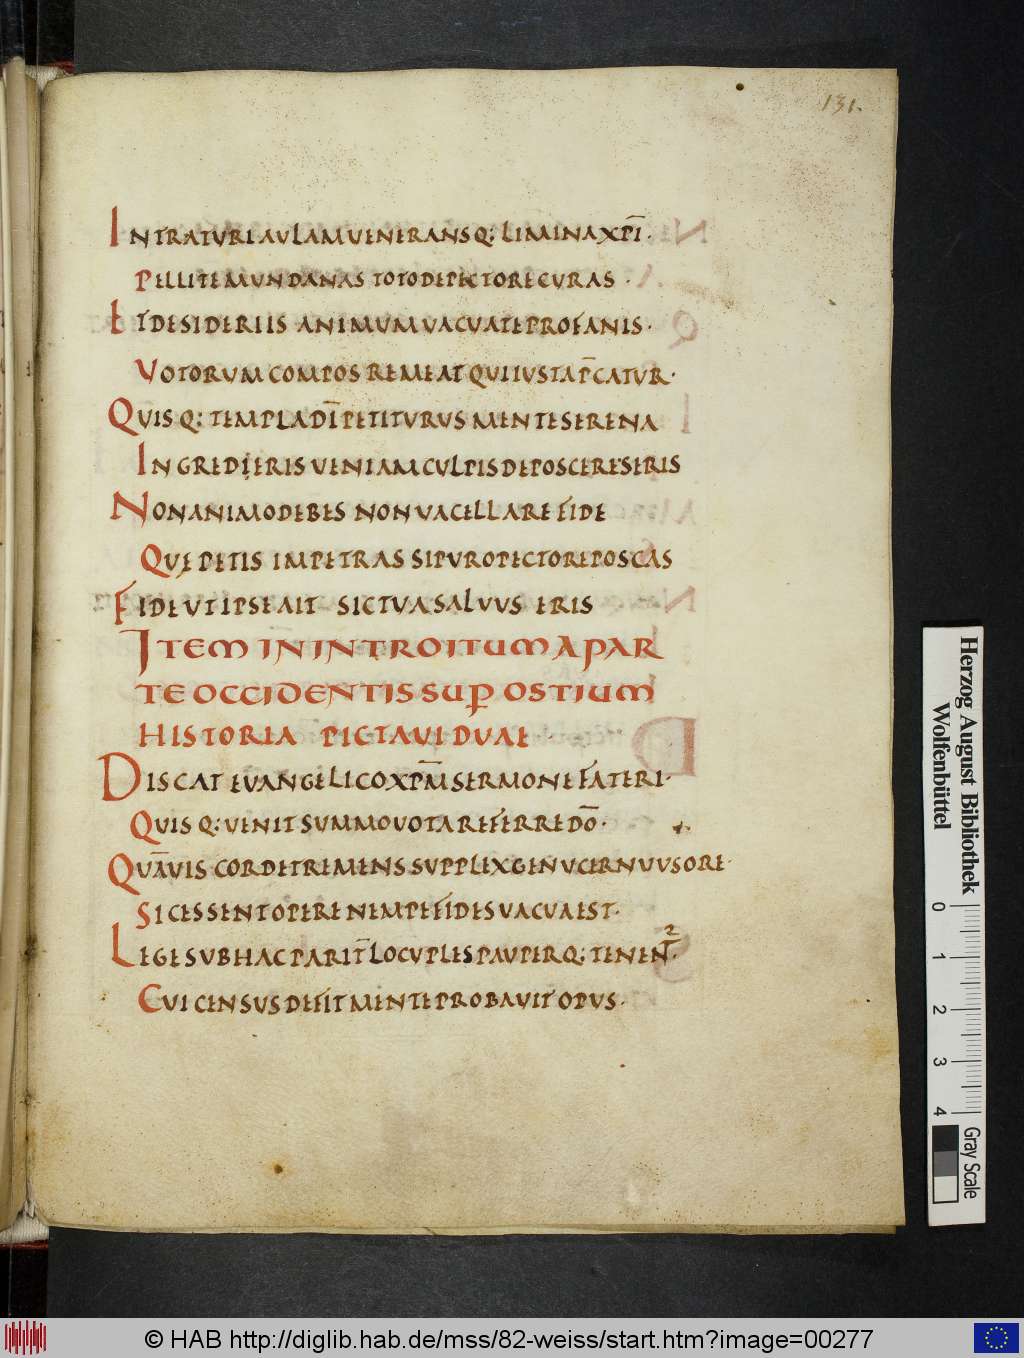 131.
INTRATURI AULAM UENERANSQ; LIMINA XPĪ.
PELLITE MUNDANAS TOTO DE PECTORE CURAS.
ET DESIDERIIS ANIMUM VACUATE PROFANIS.
VOTORUM COMPOS REMEAT QUI IUSTA P̄CATUR.
QUISQ: TEMPLA DĪ PETITURUS MENTE SERENA
INGREDIERIS UENIAM CULPIS DEPOSCERE SERIS
NON ANIMO DEBES NON VACELLARE FIDE
QUĘ PETIS IMPETRAS SI PURO PECTORE POSCAS
FIDE UT IPSE AIT SIC TUA SALUUS ERIS
ITEM IN INTROITUM A PAR
TE OCCIDENTIS SUꝑ OSTIUM
HISTORIA PICTAVI DUAE
DISCAT EVANGELICO XPM̄ SERMONE FATERI.
QUISQ: UENIT SUMMO UOTA REFERRE DŌ.
QUĀVIS CORDE TREMENS SUPPLEX GENU CERNUUS ORE.
SI CESSENT OPERE NEMPE FIDES VACUA EST.
LEGE SUB HAC PARIT̄ LOCUPLES PAUPERQ; TENENT.
CUI CENSUS DEFIT MENTE PROBAVIT OPUS.
Herzog August Bibliothek
Wolfenbüttel
0 1 2 3 4
Gray Scale
© HAB http://diglib.hab.de/mss/82-weiss/start.htm?image=00277